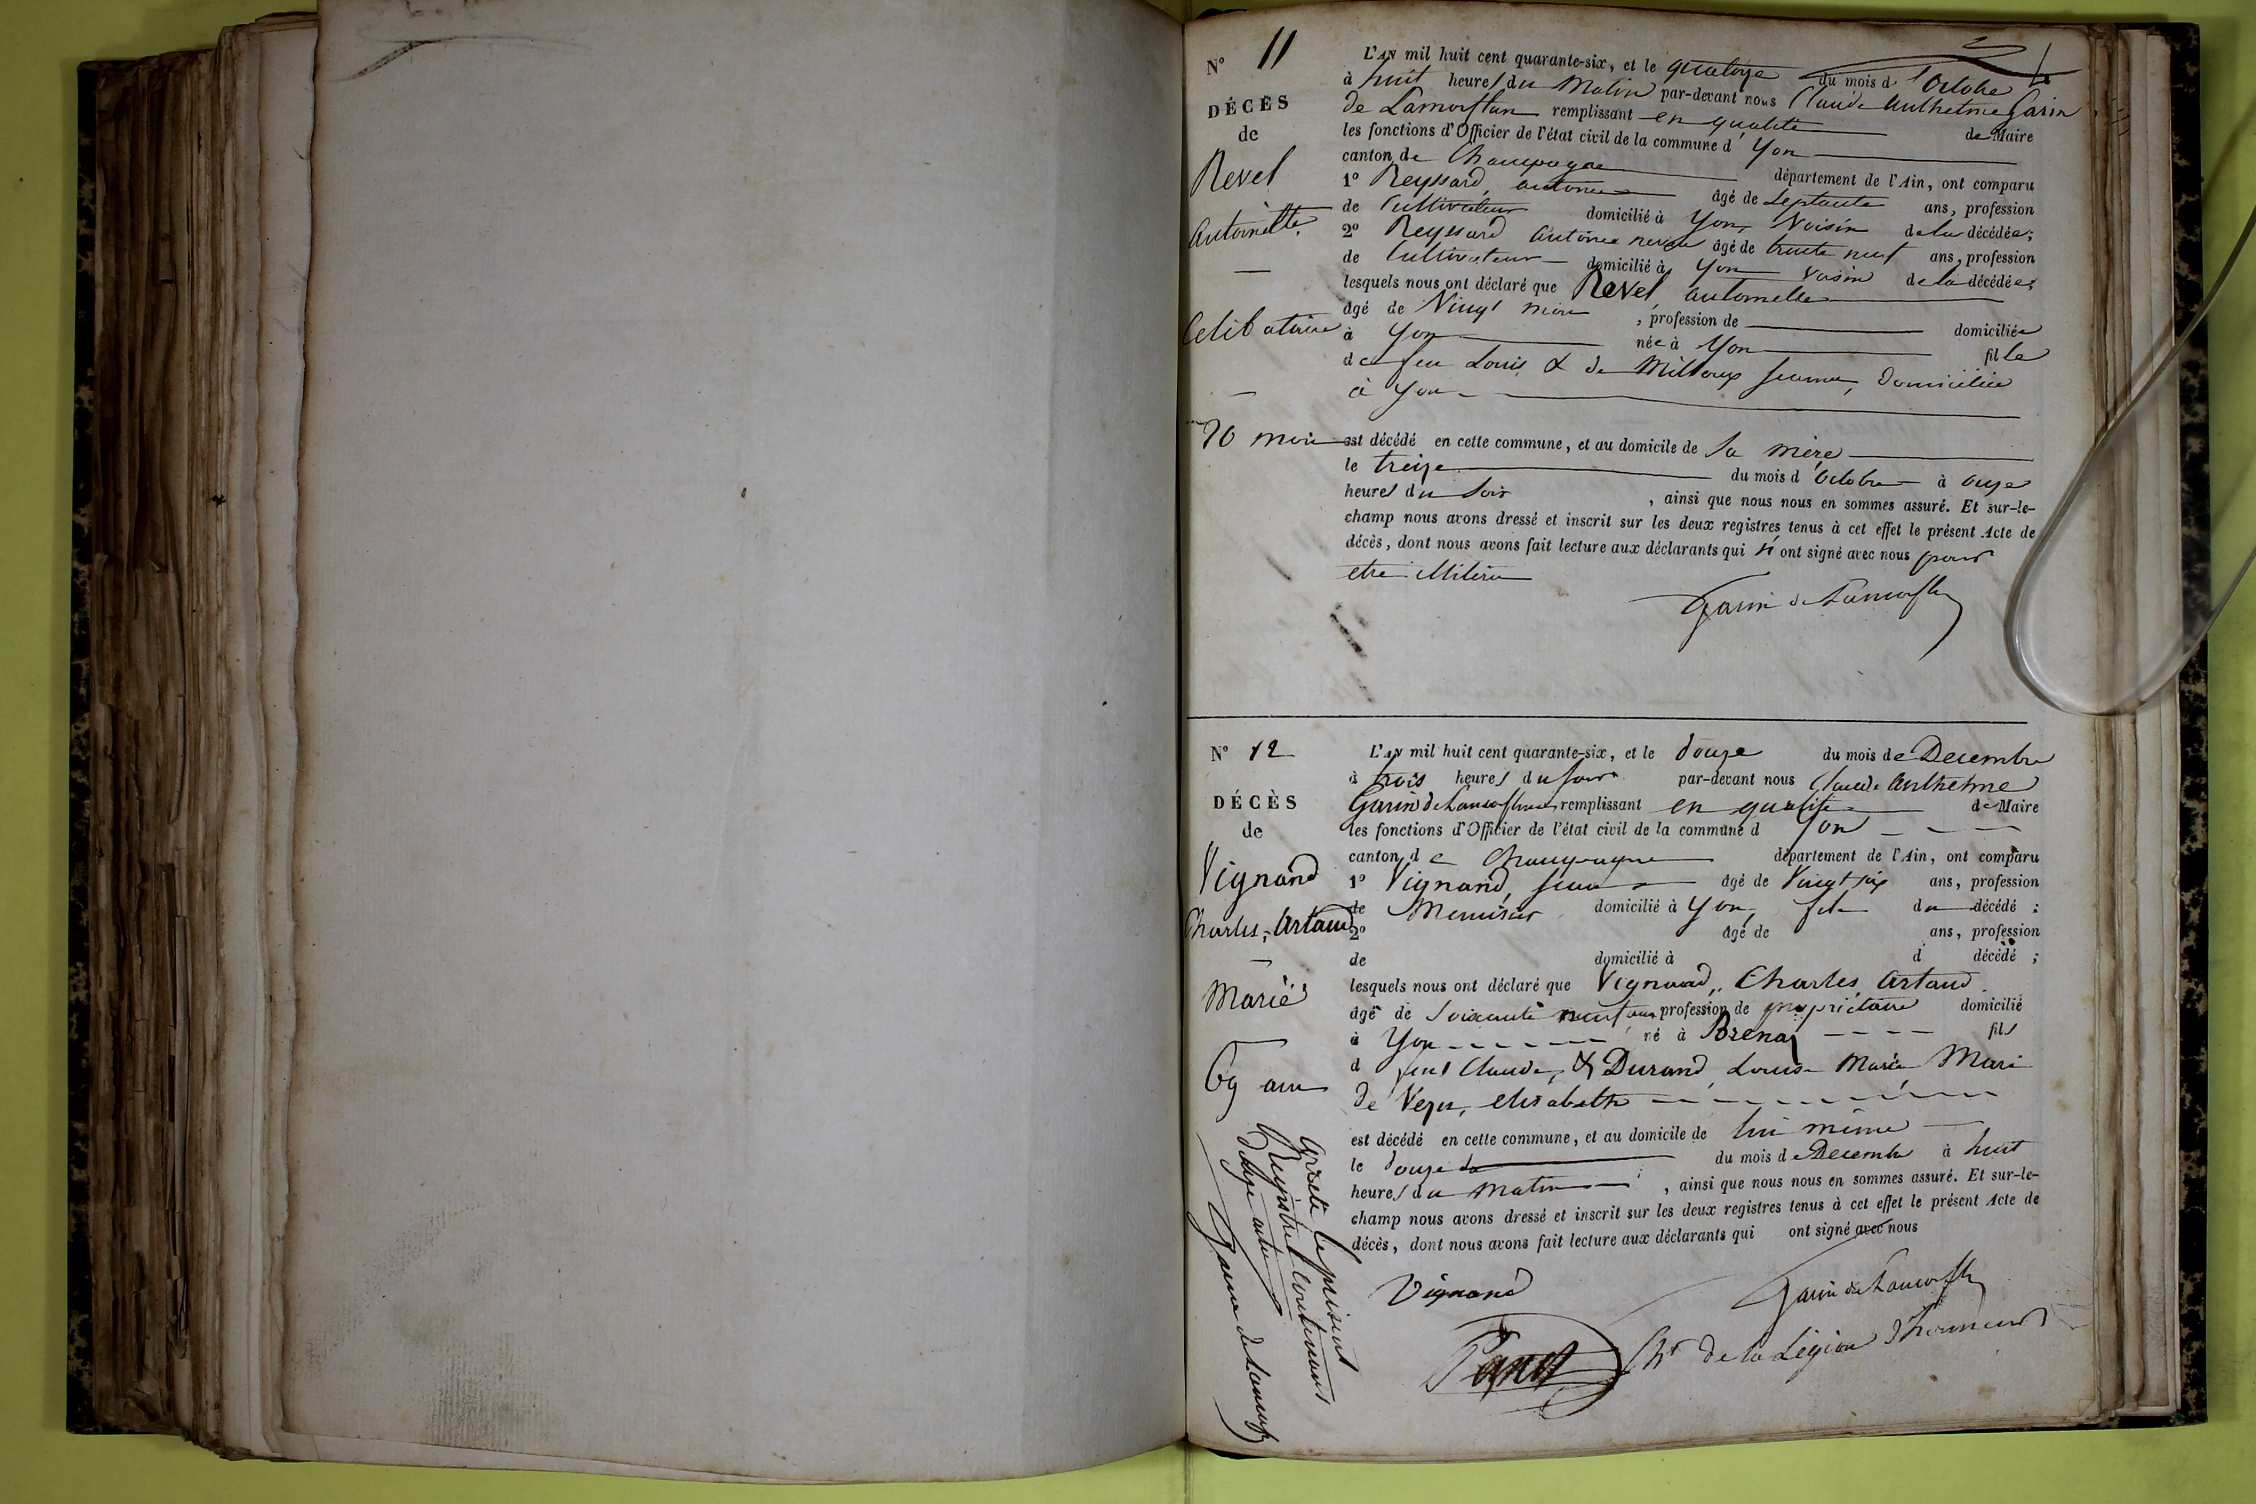 N° 11
DÉCÈS
de
Revel
Antoinette
Célibataire
20 mois
L'AN mil huit cent quarante-six, et le quatorze du mois d'Octobre
à huit heures du Matin par-devant nous Claude Anthelme Garin
de Lamorflan remplissant en qualité de Maire
les fonctions d'Officier de l'état civil de la commune d Yon
canton de Champagne département de l'Ain, ont comparu
1° Reyssard, antoine âgé de Septante ans, profession
de Cultivateur domicilié à Yon, Voisin de la décédée;
2° Reyssard antoine neveu âgé de trente neuf ans, profession
de Cultivateur domicilié à Yon voisin de la décédée;
lesquels nous ont déclaré que Revel, antoinette
âgé de Vingt mois, profession de domiciliée
à Yon née à Yon fille
de feu Louis & de Jeanne, domiciliée
à Yon
est décédé en cette commune, et au domicile de sa mère
le treize du mois d'Octobre à onze
heures du Soir, ainsi que nous nous en sommes assuré. Et sur-le-
champ nous avons dressé et inscrit sur les deux registres tenus à cet effet le présent Acte de
décès, dont nous avons fait lecture aux déclarants qui n'ont signé avec nous pour
etre
Garin de Lamorflan
N° 12
DÉCÈS
de
Vignand
Charles, Artaud
Marié
69 ans
L'AN mil huit cent quarante-six, et le douze du mois de Decembre
à trois heures du soir par-devant nous Claude Anthelme
Garin de Lamorflan remplissant en qualité de Maire
les fonctions d'Officier de l'état civil de la commune d Yon
canton de Champagne département de l'Ain, ont comparu
1° Vignand, Jean âgé de Vingt six ans, profession
de Menuisier domicilié à Yon, fils du décédé;
2° âgé de ans, profession
de domicilié à d décédé;
lesquels nous ont déclaré que Vignand, Charles Artaud
âgé de Soixante neuf ans profession de propriétaire domicilié
à Yon né à Brenaz fils
d feus Claude, & Durand Louise Marie Mari
de elisabeth
est décédé en cette commune, et au domicile de lui même
le douze du du mois de Decembre à huit
heures du matin, ainsi que nous nous en sommes assuré. Et sur-le-
champ nous avons dressé et inscrit sur les deux registres tenus à cet effet le présent Acte de
décès, dont nous avons fait lecture aux déclarants qui ont signé avec nous
Vignand
Garin de Lamorflan
Chr de la Légion d'honneur
Arrêté le présent
Registre Contenant
douze actes
Garin de Lamorflan